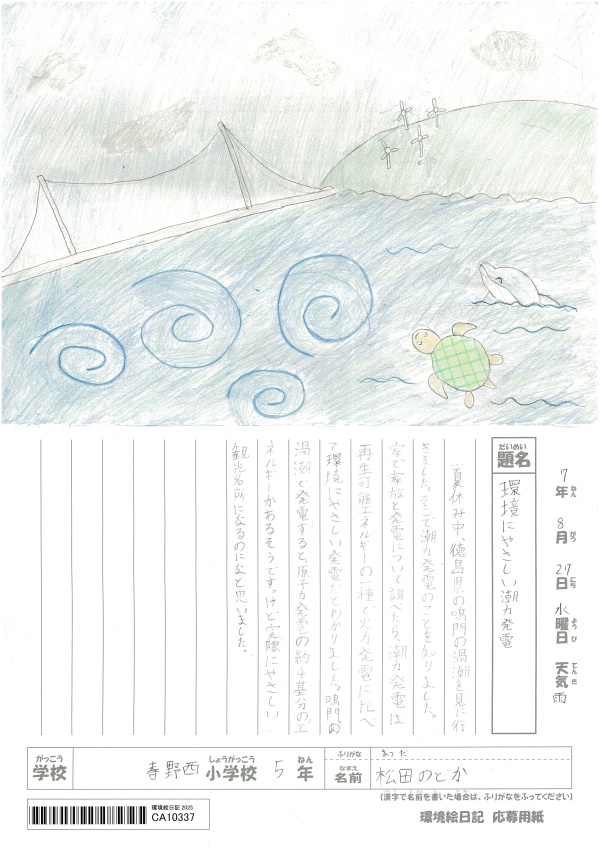 7年ねん 8月がつ 27日にち 水曜日ようび 天気てんき 雨
だいめい
題名
環境にやさしい潮力発電
夏休み中、徳島県の鳴門の渦潮を見に行
きました。そこで潮力発電のことを知りました。
家で家族と発電について調べたら、潮力発電は
再生可能エネルギーの一種で火力発電に比べ
て環境にやさしい発電だとわかりました。鳴門の
渦潮で発電すると、原子力発電の約
基分のエ
ネルギーがあるそうです。けど実際にやさしい
観光名所になるのになと思いました。
がっこう
学校
春野西 小学校 5年
しょうがっこう
ねん
ふりがな まつだ
なまえ
名前 松田のどか
(漢字で名前を書いた場合は、ふりがなをふってください)
環境絵日記 2025
CA10337
環境絵日記 応募用紙